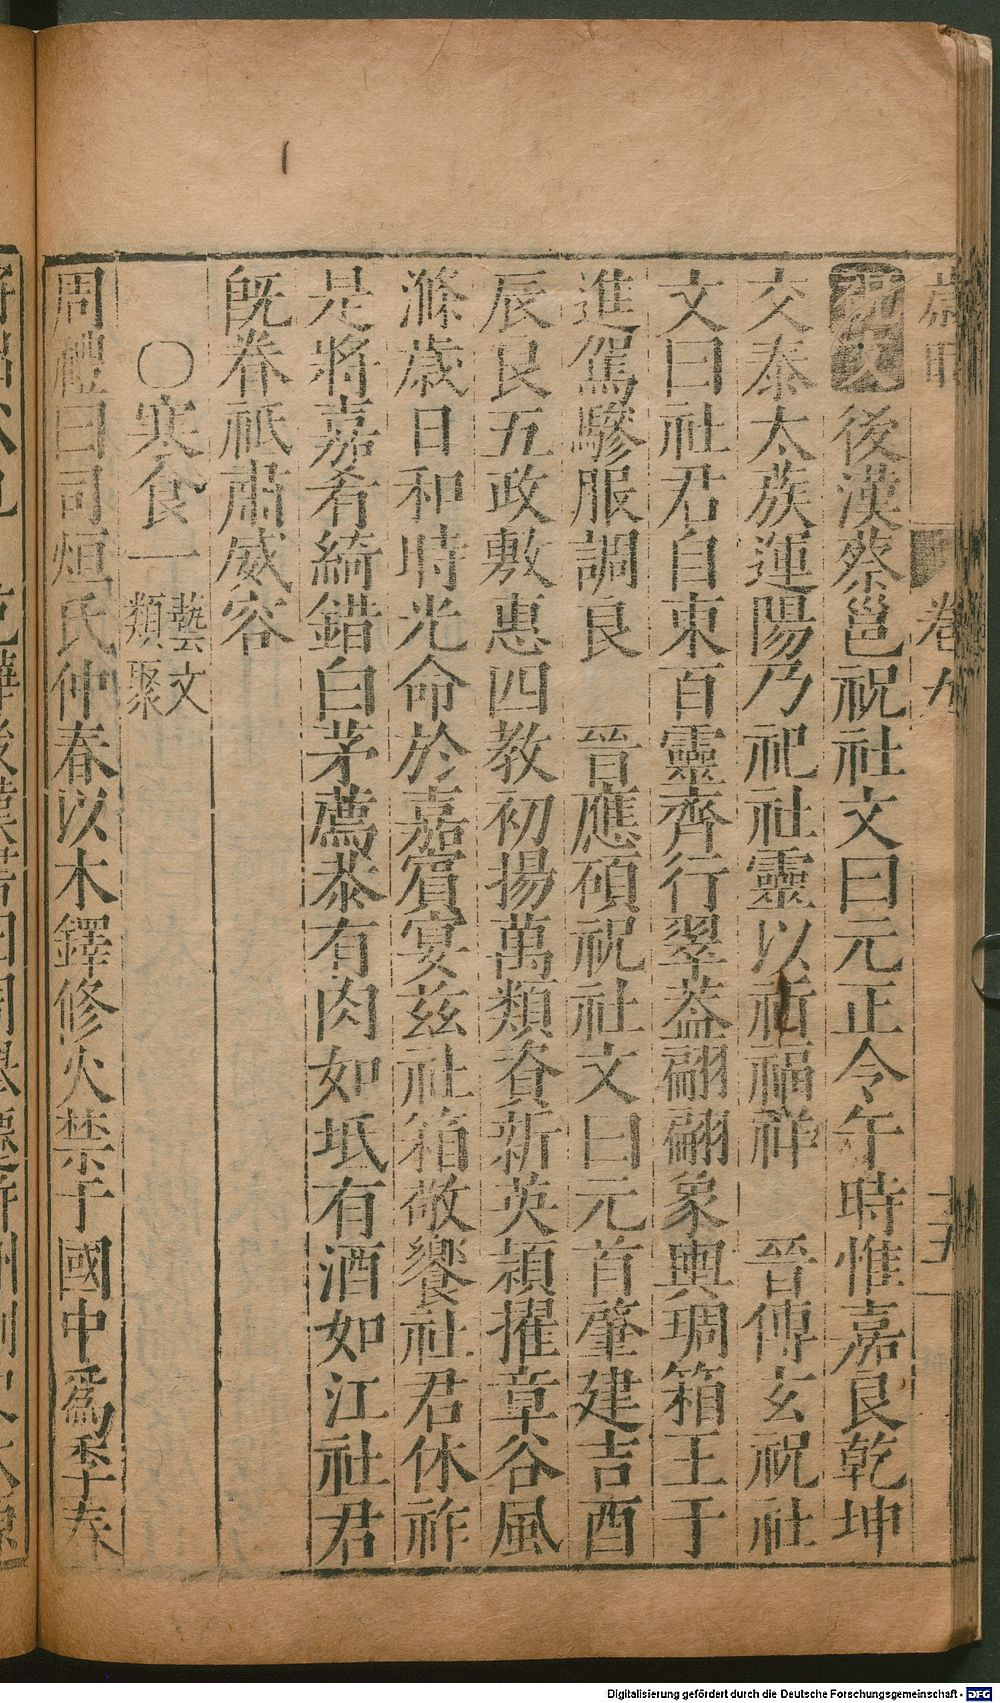 歲時 卷九 十五
祝文 後漢蔡邕祝社文曰元正令午時惟嘉良乾坤
交泰太蔟運陽乃祀社靈以祈福祥 晉傅玄祝社
文曰社君自東百靈齊行翠蓋翩翩象輿琱箱王于
進駕驂服調良 晉應碩祝社文曰元首肇建吉酉
辰良五政敷惠四教初揚萬類資新英穎擢章谷風
滌歲日和時光命於嘉賓宴茲社箱敬饗社君休祚
是將嘉肴綺錯白茅薦恭有肉如坻有酒如江社君
旣眷祇肅威容
〇寒食一 藝文類聚
周禮曰司烜氏仲春以木鐸修火禁于國中爲季春
Digitalisierung gefördert durch die Deutsche Forschungsgemeinschaft - DFG